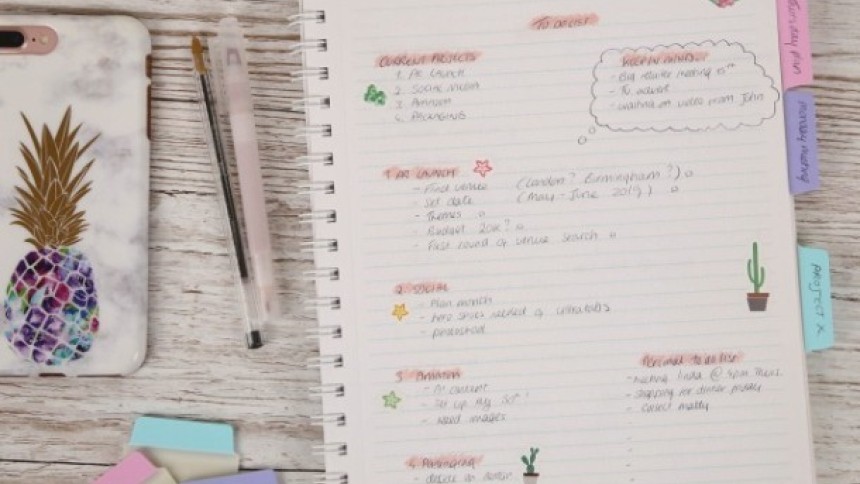 TO DO LIST
CURRENT PROJECTS
1. AR LAUNCH
2. SOCIAL MEDIA
3. AMAZON
4. PACKAGING
KEEP IN MIND...
- Big retailer meeting 15th
- TV advert
- waiting on video from John
1 AR LAUNCH
- Find venue (London? Birmingham?)
- Set date (May - June 2019)
- Themes
- Budget 20k?
- First round of venue search
2. SOCIAL
- Plan month
- hero shots needed of
- photoshoot
3 AMAZON
- A+ content
- Set up
- Need images
4 PACKAGING
- decide on
Personal to do list
- Meeting Linda @ 4pm Thurs.
- Shopping for dinner Friday
- Collect
Sunday plan
Monday meeting
PROJECT X